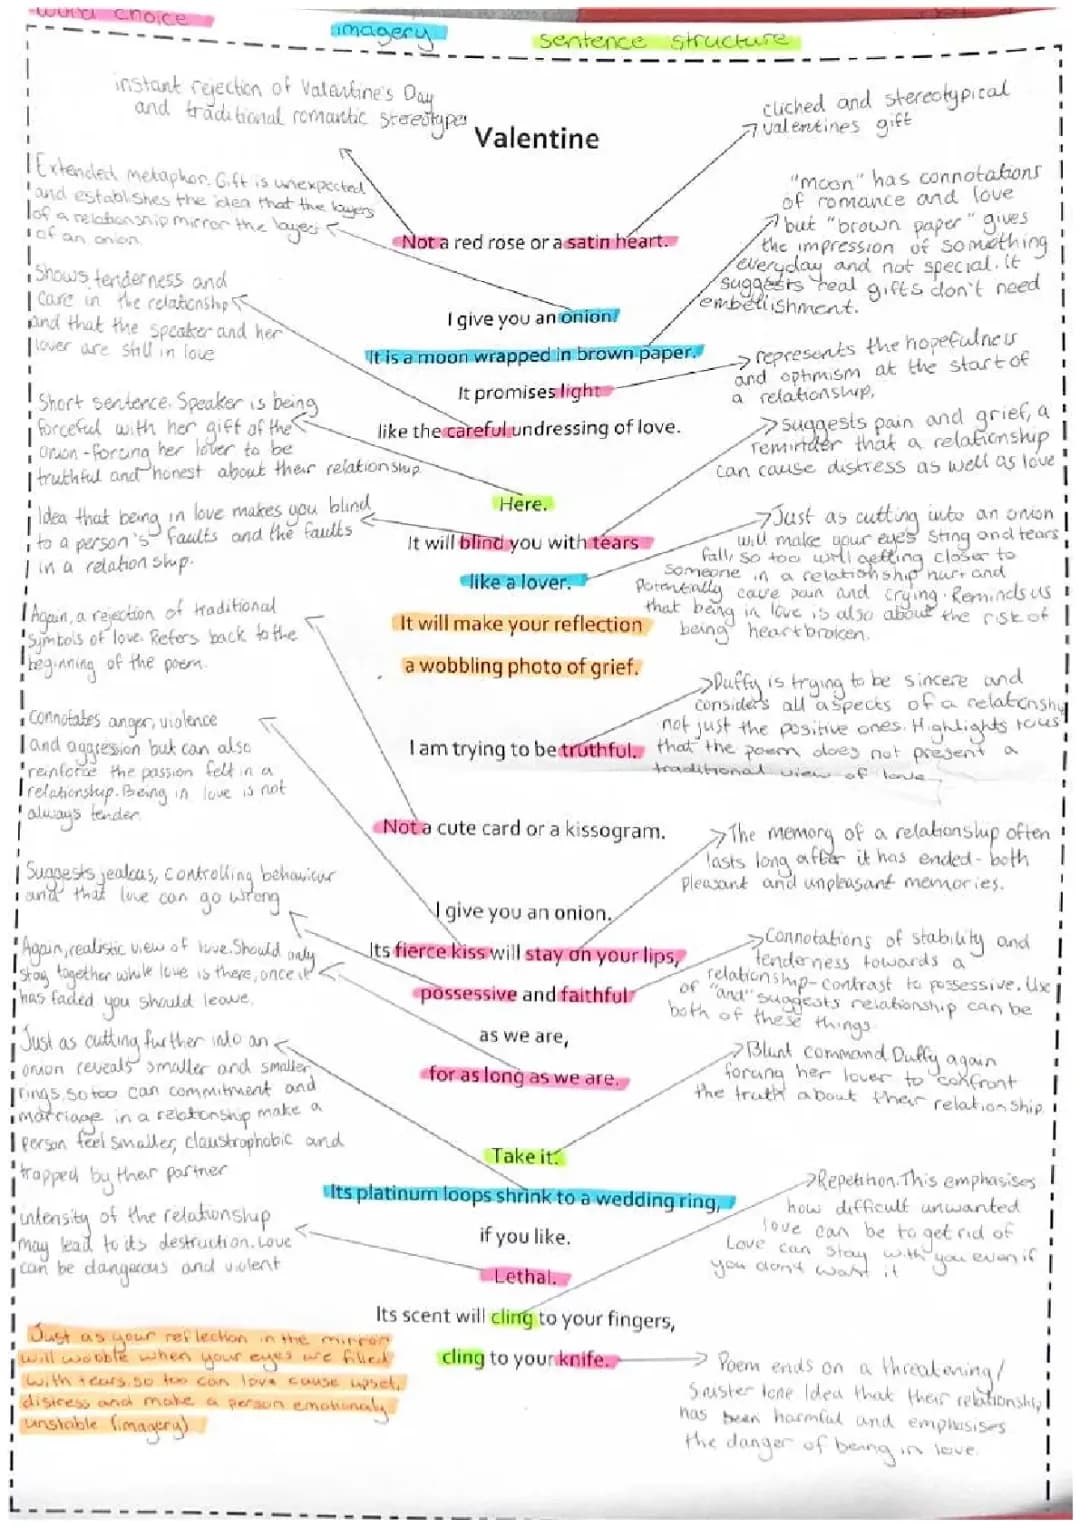 word choice
imagery
sentence structure
instant rejection of Valentine's Day
and traditional romantic stereotypes
cliched and stereotypical
valentines gift
Valentine
Extended metaphor. Gift is unexpected
and establishes the idea that the layers
of a relationship mirror the layers
of an onion.
"moon" has connotations
of romance and love
but "brown paper" gives
the impression of something
everyday and not special. It
suggests real gifts don't need
embellishment.
Not a red rose or a satin heart.
Shows tenderness and
care in the relationship
and that the speaker and her
lover are still in love
I give you an onion.
It is a moon wrapped in brown paper.
It promises light
like the careful undressing of love.
represents the hopefulness
and optimism at the start of
a relationship.
Short sentence. Speaker is being
forceful with her gift of the
onion - forcing her lover to be
truthful and honest about their relationship
suggests pain and grief, a
reminder that a relationship
can cause distress as well as love
Here.
Idea that being in love makes you blind
to a person's faults and the faults
in a relationship.
It will blind you with tears
like a lover.
It will make your reflection
a wobbling photo of grief.
Just as cutting into an onion
will make your eyes sting and tears
fall, so too will getting closer to
someone in a relationship hurt and
Potentially cause pain and crying. Reminds us
that being in love is also about the risk of
being heartbroken.
Again, a rejection of traditional
symbols of love. Refers back to the
beginning of the poem.
Duffy is trying to be sincere and
considers all aspects of a relationship
not just the positive ones. Highlights to us
that the poem does not present a
traditional view of love
I am trying to be truthful.
Connotates anger, violence
and aggression but can also
reinforce the passion felt in a
relationship. Being in love is not
always tender.
Not a cute card or a kissogram.
The memory of a relationship often
lasts long after it has ended - both
pleasant and unpleasant memories.
Suggests jealous, controlling behaviour
and that love can go wrong
I give you an onion.
Its fierce kiss will stay on your lips,
possessive and faithful
as we are,
for as long as we are.
Again, realistic view of love. Should only
stay together while love is there, once it
has faded you should leave.
Connotations of stability and
tenderness towards a
relationship - contrast to possessive. Use
of "and" suggests relationship can be
both of these things.
Just as cutting further into an
onion reveals smaller and smaller
rings, so too can commitment and
marriage in a relationship make a
person feel smaller, claustrophobic and
trapped by their partner
Blunt command. Duffy again
forcing her lover to confront
the truth about their relationship.
Take it.
Its platinum loops shrink to a wedding ring,
if you like.
Lethal.
Its scent will cling to your fingers,
cling to your knife.
Repetition. This emphasises
how difficult unwanted
love can be to get rid of
Love can stay with you even if
you don't want it
intensity of the relationship
may lead to its destruction. Love
can be dangerous and violent
Just as your reflection in the mirror
will wobble when your eyes are filled
with tears, so too can love cause upset,
distress and make a person emotionaly
unstable (imagery)
Poem ends on a threatening/
Sinister tone Idea that their relationship
has been harmful and emphasises
the danger of being in love.